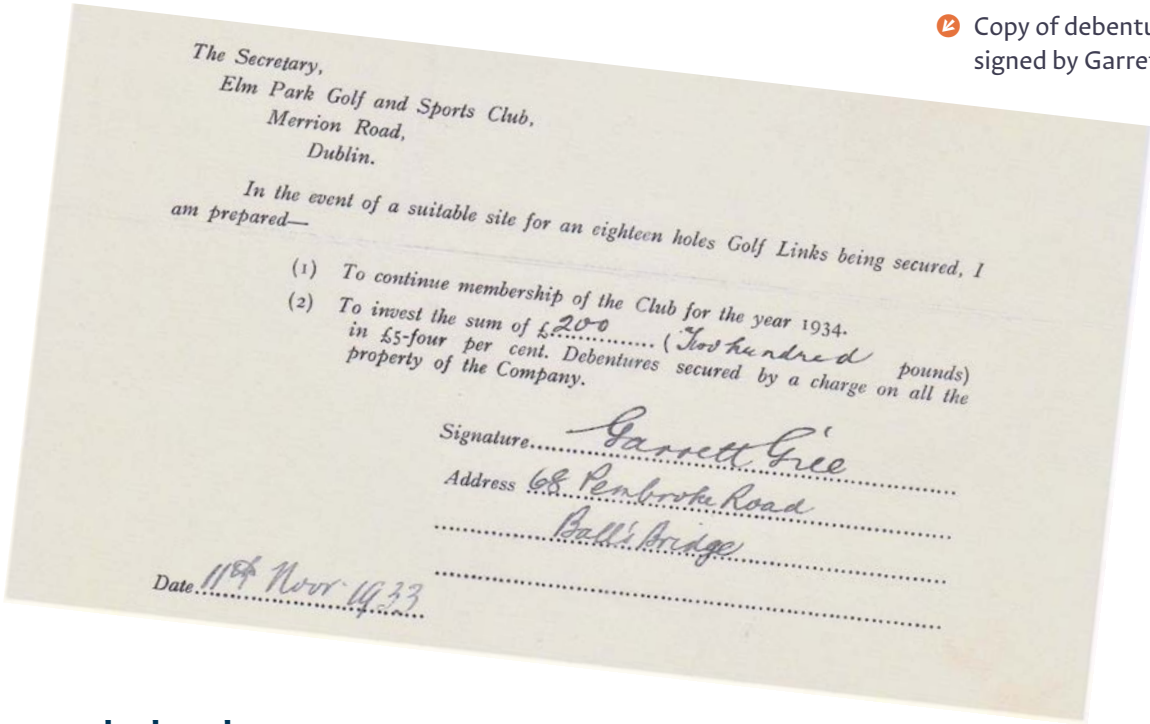 Copy of debentu
signed by Garre
The Secretary,
Elm Park Golf and Sports Club,
Merrion Road,
Dublin.
In the event of a suitable site for an eighteen holes Golf Links being secured, I
am prepared—
(1) To continue membership of the Club for the year 1934.
(2) To invest the sum of £200 (Two hundred pounds)
in £5-four per cent. Debentures secured by a charge on all the
property of the Company.
Signature Garrett
Address 68 Pembroke Road
Ball's Bridge
Date 11th Novr 1933